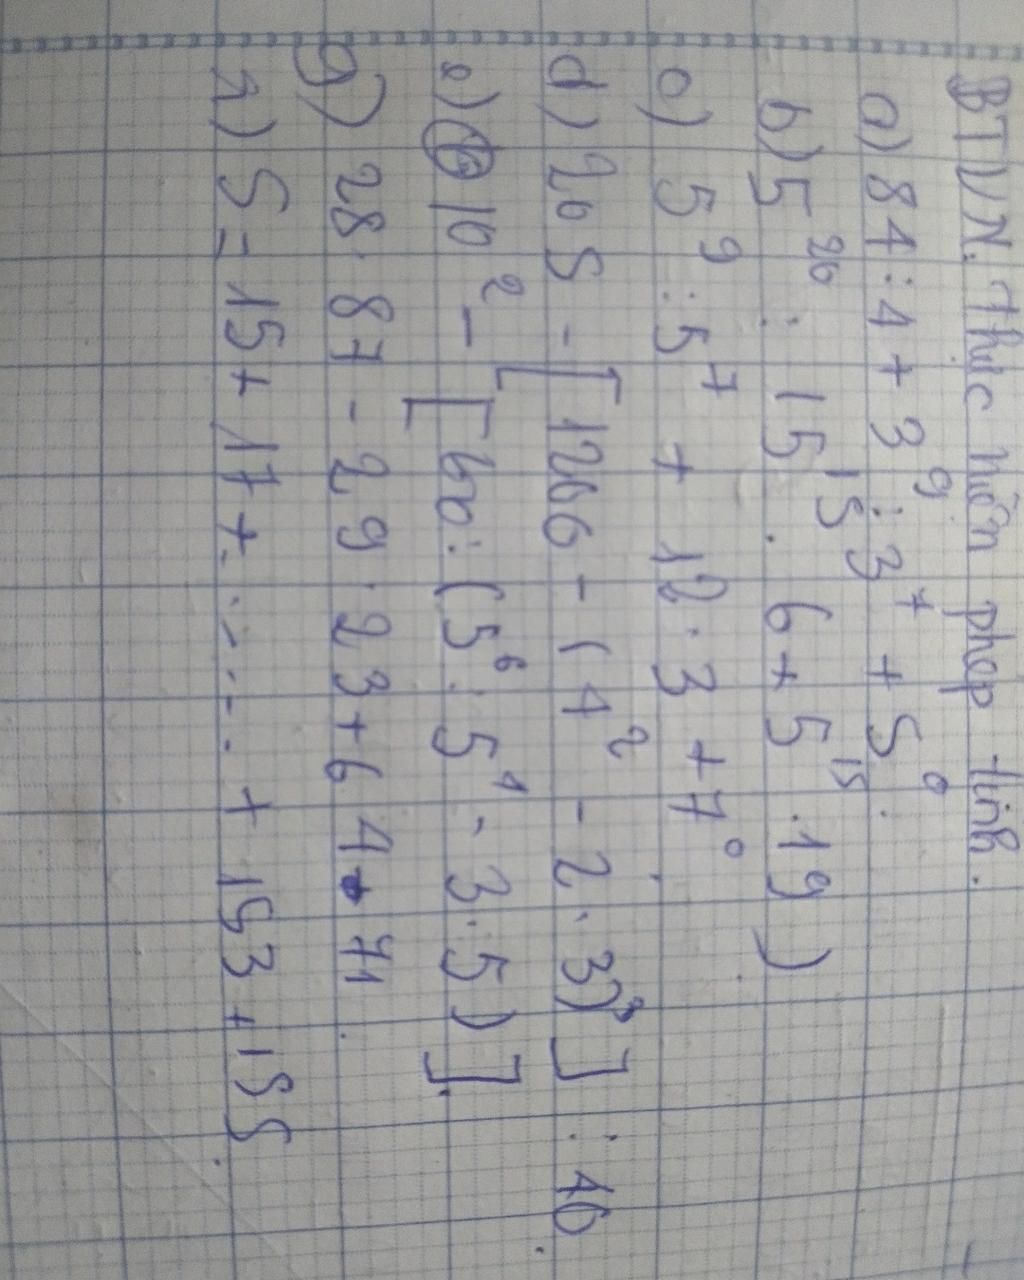 BTVN. Thực hiện phép tính.
a) 84 : 4 + 3⁹ : 3⁷ + 5⁰.
b) 5²⁰ : 15¹⁵ . 6 + 5¹⁵ . 19)
c) 5⁹ : 5⁷ + 12 . 3 + 7⁰.
d) 205 - [1200 - (4² - 2 . 3)³] : 40.
e) 10² - [60 : (5⁶ : 5⁴ - 3 . 5)].
g) 28 . 87 - 29 . 23 + 64 . 71.
h) S = 15 + 17 + ..... + 153 + 155.